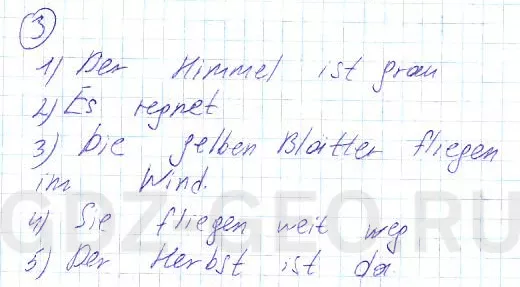 3
1) Der Himmel ist grau
2) Es regnet
3) Die gelben Blätter fliegen
im Wind.
4) Sie fliegen weit weg
5) Der Herbst ist da.
GDZ-GEO.RU